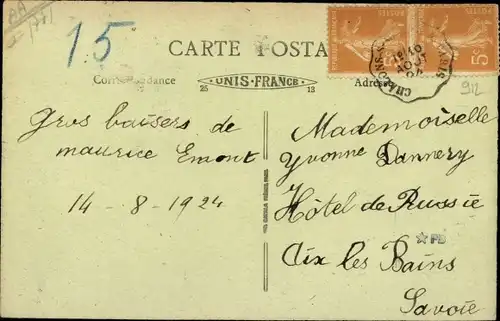 15
CARTE POSTA
Correspondance
UNIS-FRANCE
25
13
Adres
POSTES
5c
AOUT
912
Gros baisers de
maurice Emont
14 - 8 - 1924
Mademoiselle
Yvonne Dannery
Hôtel de Russie
Aix les Bains
Savoie